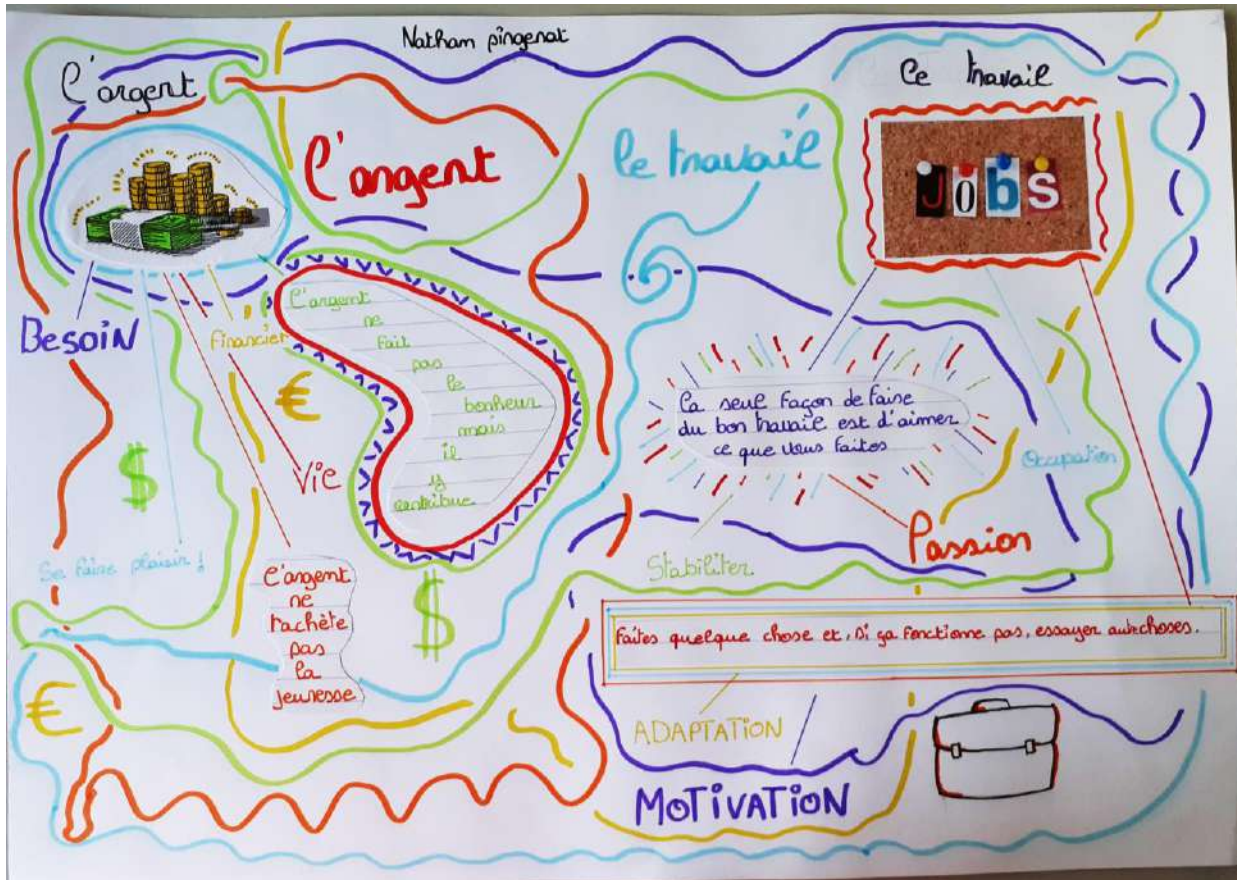 Natham pingenat
L'argent
Le travail
L'argent
le travail
JOBS
BESOIN
Financier
€
L'argent
ne
fait
pas
le
bonheur
mais
il
y
contribue
$
Vie
Se faire plaisir !
L'argent
ne
rachète
pas
la
jeunesse
$
€
La seul façon de faise
du bon travail est d'aimer
ce que vous faites
Occupation
Passion
Stabiliter
Faites quelque chose et, si ça fonctione pas, essayer autrechoses.
ADAPTATION
MOTIVATION